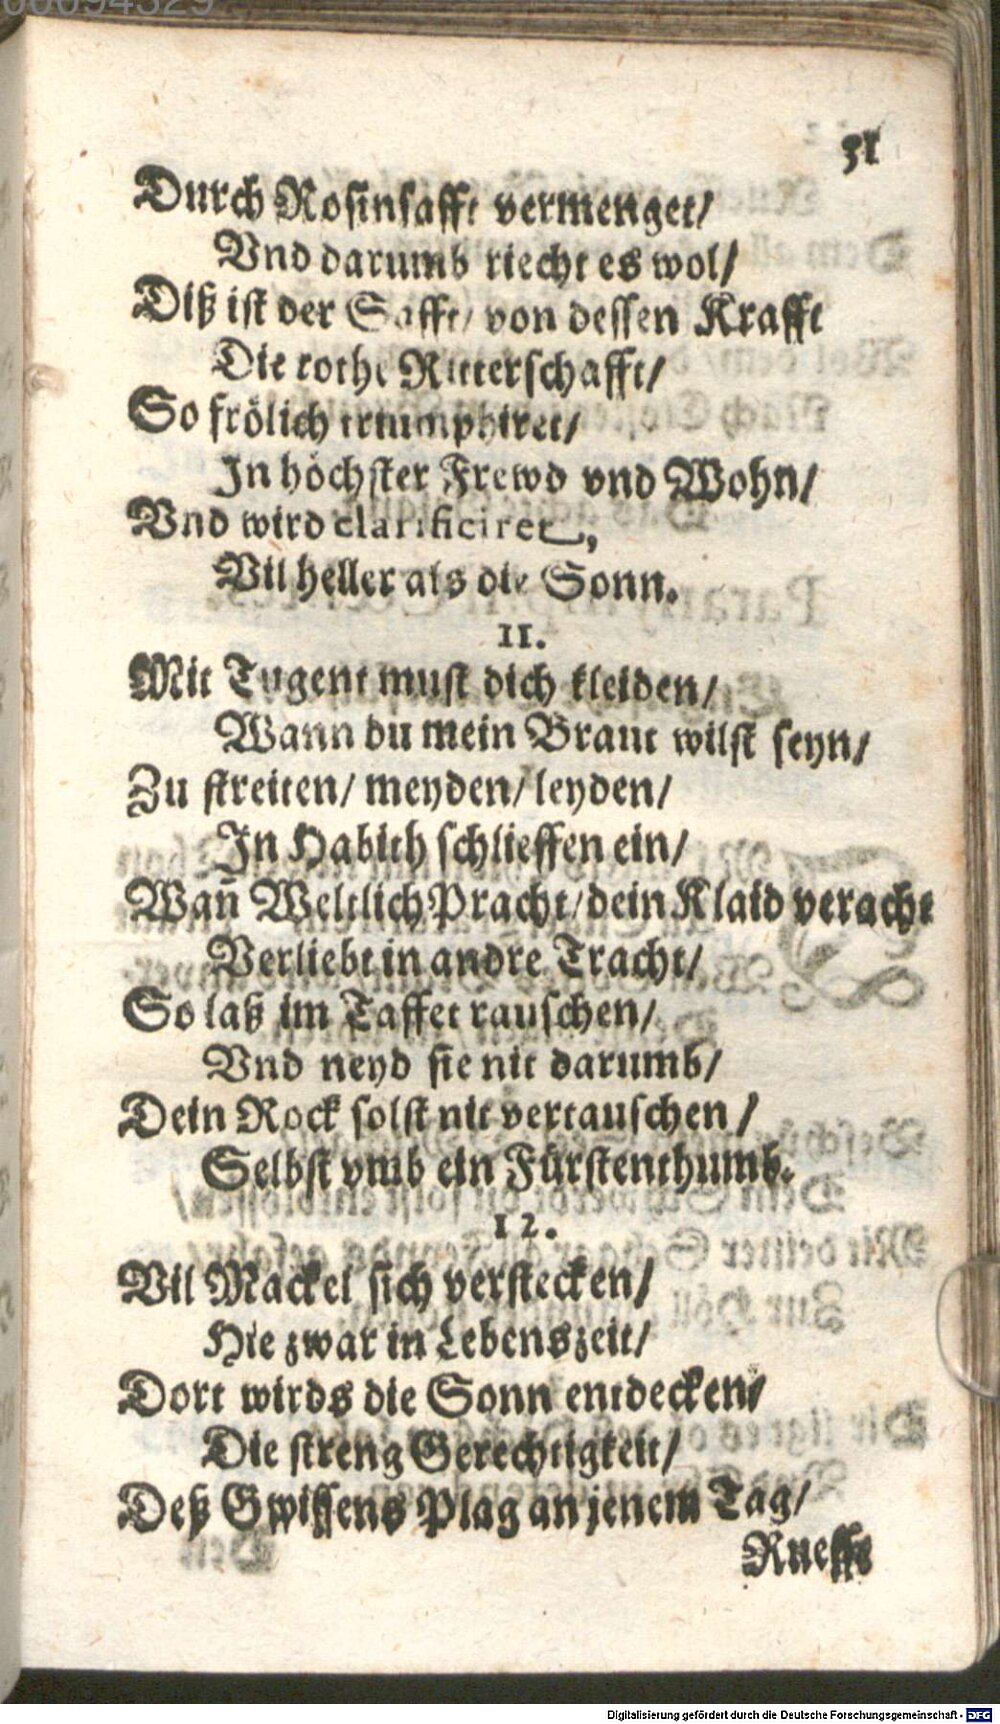 31
Durch Rosinsafft vermenget/
Vnd darumb riecht es wol/
Diß ist der Safft/ von dessen Krafft
Die rothe Ritterschafft/
So frölich triumphiret/
In höchster Frewd vnd Wohn/
Vnd wird clarificiret,
Vil heller als die Sonn.
11.
Mit Tugent must dich kleiden/
Wann du mein Braut wilst seyn/
Zu streiten/ meyden/ leyden/
In Habith schlieffen ein/
Wañ Weltlich Pracht/ dein Klaid veracht
Verliebt in andre Tracht/
So laß im Taffet rauschen/
Vnd neyd sie nit darumb/
Dein Rock solst nit vertauschen/
Selbst vmb ein Fürstenthumb.
12.
Vil Mackel sich verstecken/
Hie zwar in Lebenszeit/
Dort wirds die Sonn entdecken/
Die streng Gerechtigkeit/
Deß Gwissens Plag an jenem Tag/
Rueffe
Digitalisierung gefördert durch die Deutsche Forschungsgemeinschaft - DFG